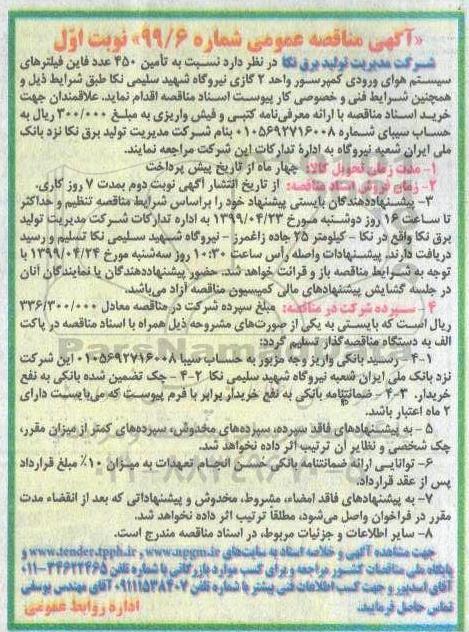 «آگهی مناقصه عمومی شماره ۹۹/۶» نوبت اوّل
شرکت مدیریت تولید برق نکا در نظر دارد نسبت به تأمین ۴۵۰ عدد فاین فیلترهای
سیستم هوای ورودی کمپرسور واحد ۲ گازی نیروگاه شهید سلیمی نکا طبق شرایط ذیل و
همچنین شرایط فنی و خصوصی کار پیوست اسناد مناقصه اقدام نماید. علاقمندان جهت
خرید اسناد مناقصه با ارائه معرفی‌نامه کتبی و فیش واریزی به مبلغ ۳۰۰/۰۰۰ ریال به
حساب سیبای شماره ۰۱۰۵۶۹۲۷۱۶۰۰۸ بنام شرکت مدیریت تولید برق نکا نزد بانک
ملی ایران شعبه نیروگاه به ادارۀ تدارکات این شرکت مراجعه نمایند.
۱- مدت زمان تحویل کالا: چهار ماه از تاریخ پیش پرداخت
۲- زمان فروش اسناد مناقصه: از تاریخ انتشار آگهی نوبت دوم بمدت ۷ روز کاری.
۳- پیشنهاددهندگان بایستی پیشنهاد خود را براساس شرایط مناقصه تنظیم و حداکثر
تا ساعت ۱۶ روز دوشنبه مورخ ۱۳۹۹/۰۴/۲۳ به اداره تدارکات شرکت مدیریت تولید
برق نکا واقع در نکا - کیلومتر ۲۵ جاده زاغمرز - نیروگاه شهید سلیمی نکا تسلیم و رسید
دریافت دارند. پیشنهادات واصله رأس ساعت ۱۰:۳۰ روز سه‌شنبه مورخ ۱۳۹۹/۰۴/۲۴ با
توجه به شرایط مناقصه باز و قرائت خواهد شد. حضور پیشنهاددهندگان یا نمایندگان آنان
در جلسه گشایش پیشنهادهای مالی کمیسیون مناقصه آزاد می‌باشد.
۴ - سپرده شرکت در مناقصه: مبلغ سپرده شرکت در مناقصه معادل ۳۳۶/۳۰۰/۰۰۰
ریال است که بایستی به یکی از صورت‌های مشروحه ذیل همراه با اسناد مناقصه در پاکت
الف به دستگاه مناقصه‌گذار تسلیم گردد:
۴-۱- رسید بانکی واریز وجه مزبور به حساب سیبا ۰۱۰۵۶۹۲۷۱۶۰۰۸ این شرکت
نزد بانک ملی ایران شعبه نیروگاه شهید سلیمی نکا ۴-۲- چک تضمین شده بانکی به نفع
خریدار. ۴-۳- ضمانتنامه بانکی به نفع خریدار برابر با فرم پیوست که می‌بایست دارای
۲ ماه اعتبار باشد.
۵ - به پیشنهادهای فاقد سپرده، سپرده‌های مخدوش، سپرده‌های کمتر از میزان مقرر،
چک شخصی و نظایر آن ترتیب اثر داده نخواهد شد.
۶- توانایی ارائه ضمانتنامه بانکی حسن انجام تعهدات به میزان ۱۰٪ مبلغ قرارداد
پس از عقد قرارداد.
۷- به پیشنهادهای فاقد امضاء، مشروط، مخدوش و پیشنهاداتی که بعد از انقضاء مدت
مقرر در فراخوان واصل می‌شود، مطلقاً ترتیب اثر داده نخواهد شد.
۸- سایر اطلاعات و جزئیات مربوط، در اسناد مناقصه مندرج است.
جهت مشاهده آگهی و خلاصه اسناد به سایت‌های www.npgm.ir و www.tender.tpph.ir و
پایگاه ملی مناقصات کشور مراجعه و برای کسب موارد بازرگانی با شماره تلفن ۳۴۶۲۲۴۶۵-۰۱۱
آقای اسدپور و جهت کسب اطلاعات فنی بیشتر با شماره تلفن ۰۹۱۱۱۵۳۸۴۰۷ آقای مهندس یوسفی
تماس حاصل فرمایید.
اداره روابط عمومی